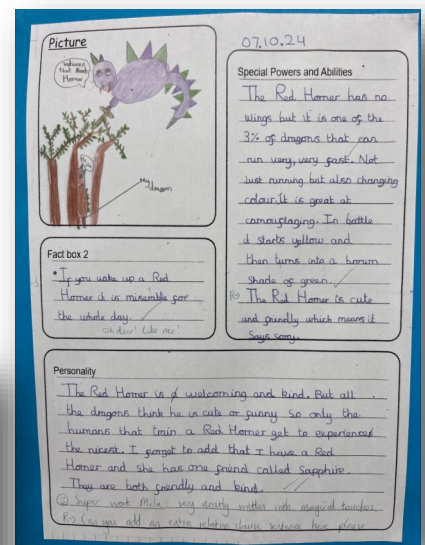 Picture
Where's
that Red
Horner
My dragon
07.10.24
Special Powers and Abilities
The Red Horner has no
wings but it is one of the
3% of dragons that can
run very, very fast. Not
just running but also changing
colour. It is great at
camouflaging. In battle
it starts yellow and
then turns into a brown
shade of green.
R> The Red Horner is cute
and friendly which means it
says sorry.
Fact box 2
• If you wake up a Red
Horner it is miserable for
the whole day.
Oh dear! Like me!
Personality
The Red Horner is welcoming and kind. But all
the dragons think he is cute or funny so only the
humans that train a Red Horner get to experience
the nicest. I forget to add that I have a Red
Horner and she has one friend called Sapphire.
They are both friendly and kind.
☺ Super work Mila very neatly written with magical touches.
R> Can you add an extra relative clause sentence here please